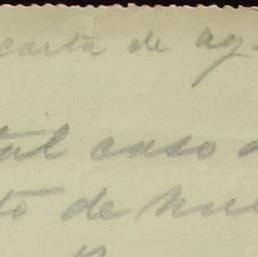 carta de ag
tal caso
to de nue